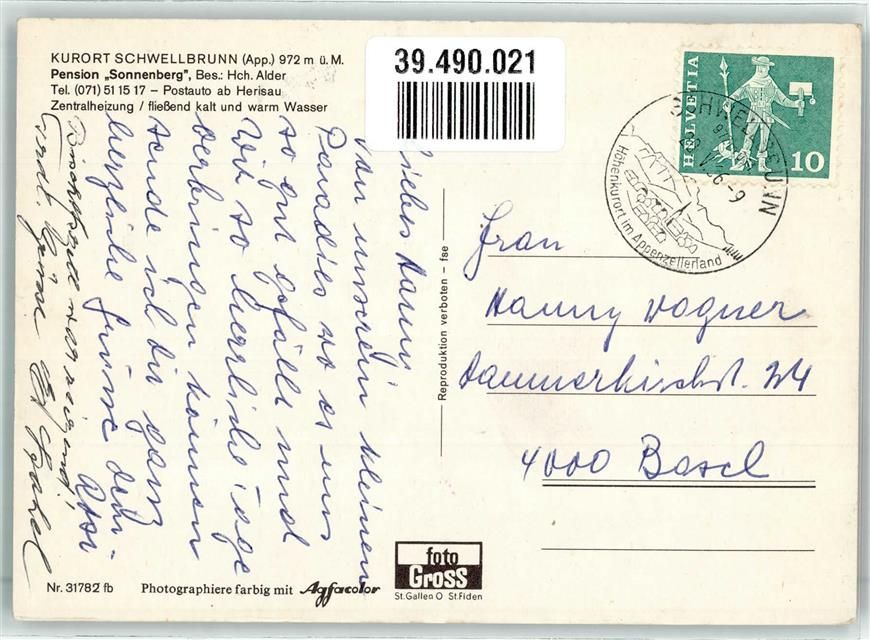 KURORT SCHWELLBRUNN (App.) 972 m ü. M.
Pension „Sonnenberg", Bes.: Hch. Alder
Tel. (071) 51 15 17 – Postauto ab Herisau
Zentralheizung / fließend kalt und warm Wasser
39.490.021
HELVETIA
10
SCHWELLBRUNN
Höhenkurort im Appenzellerland
Liebes Hanny,
Von unserem kleinen
Paradies wo es uns
so gut gefällt und
wir so herrliche Tage
verbringen können
sende ich dir ganz
herzliche Grüsse dein-
Rosi
Frau
Hanny Wagner
Dammerkirchst. 24
4000 Basel
Reproduktion verboten – fse
Nr. 31782 fb
Photographiere farbig mit Agfacolor
foto
Gross
St. Gallen O St. Fiden